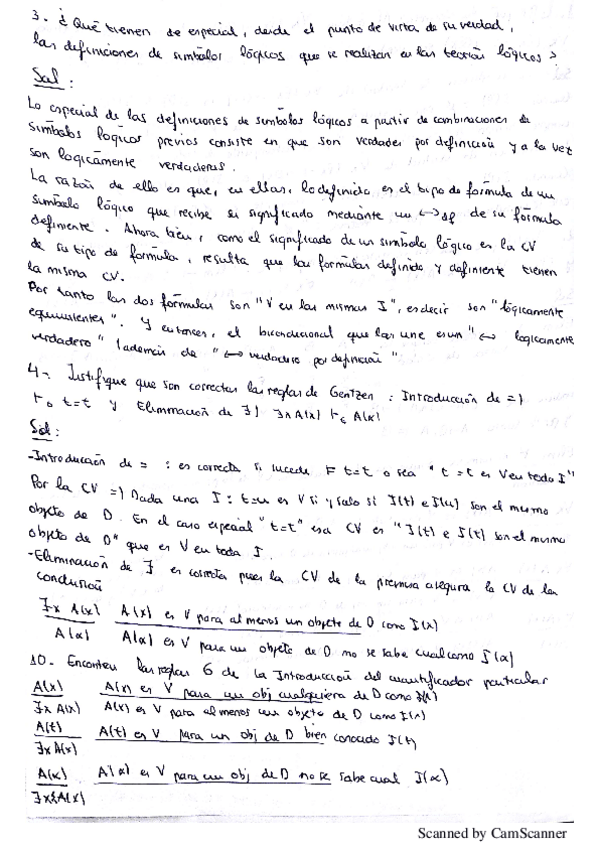 3. ¿Qué tienen de especial, desde el punto de vista de su verdad,
las definiciones de símbolos lógicos que se realizan en las teorías lógicas?
Sol:
Lo especial de las definiciones de símbolos lógicos a partir de combinaciones de
símbolos lógicos previos consiste en que son verdades por definición y a la vez
son lógicamente verdaderas.
La razón de ello es que, en ellas, lo definido es el tipo de fórmula de un
símbolo lógico que recibe su significado mediante un ↔ df de su fórmula
definiente. Ahora bien, como el significado de un símbolo lógico es la CV
de su tipo de fórmula, resulta que las fórmulas definido y definiente tienen
la misma CV.
Por tanto las dos fórmulas son "V en las mismas I", es decir son "lógicamente
equivalentes". Y entonces, el bicondicional que las une es un "↔ lógicamente
verdadero" (además de "↔ verdadero por definición"
4-. Justifique que son correctas las reglas de Gentzen: Introducción de =)
⊢ t=t y Eliminación de ∃) ∃x A(x) ⊢ A(α)
Sol:
-Introducción de = : es correcta si sucede ⊨ t=t o sea "t=t es V en toda I"
Por la CV =) Dada una I: t=u es V si y solo si I(t) e I(u) son el mismo
objeto de D. En el caso especial "t=t" esa CV es "I(t) e I(t) son el mismo
objeto de D" que es V en toda I.
-Eliminación de ∃ es correcta pues la CV de la premisa asegura la CV de la
conclusión
∃x A(x) A(x) es V para al menos un objeto de D como I(x)
A(α) A(α) es V para un objeto de D no se sabe cual como I(α)
10. las reglas 6 de la Introducción del cuantificador particular
A(x) A(x) es V para un obj cualquiera de D como I(x)
∃x A(x) A(x) es V para al menos un objeto de D como I(x)
A(t) A(t) es V para un obj de D bien conocido I(t)
∃x A(x)
A(α) A(α) es V para un obj de D no se sabe cual I(α)
∃x A(x)
Scanned by CamScanner